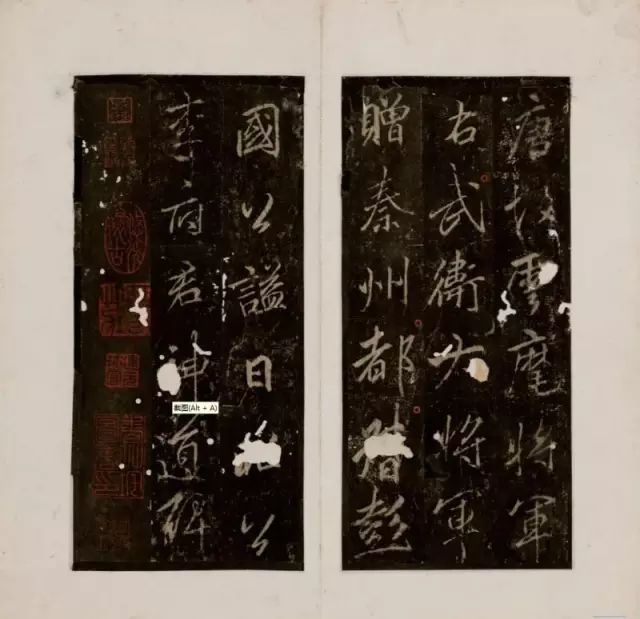 唐故雲麾将軍
右武衛大将軍
贈秦州都督彭
國公謚曰公
李府君神道碑
截图(Alt + A)